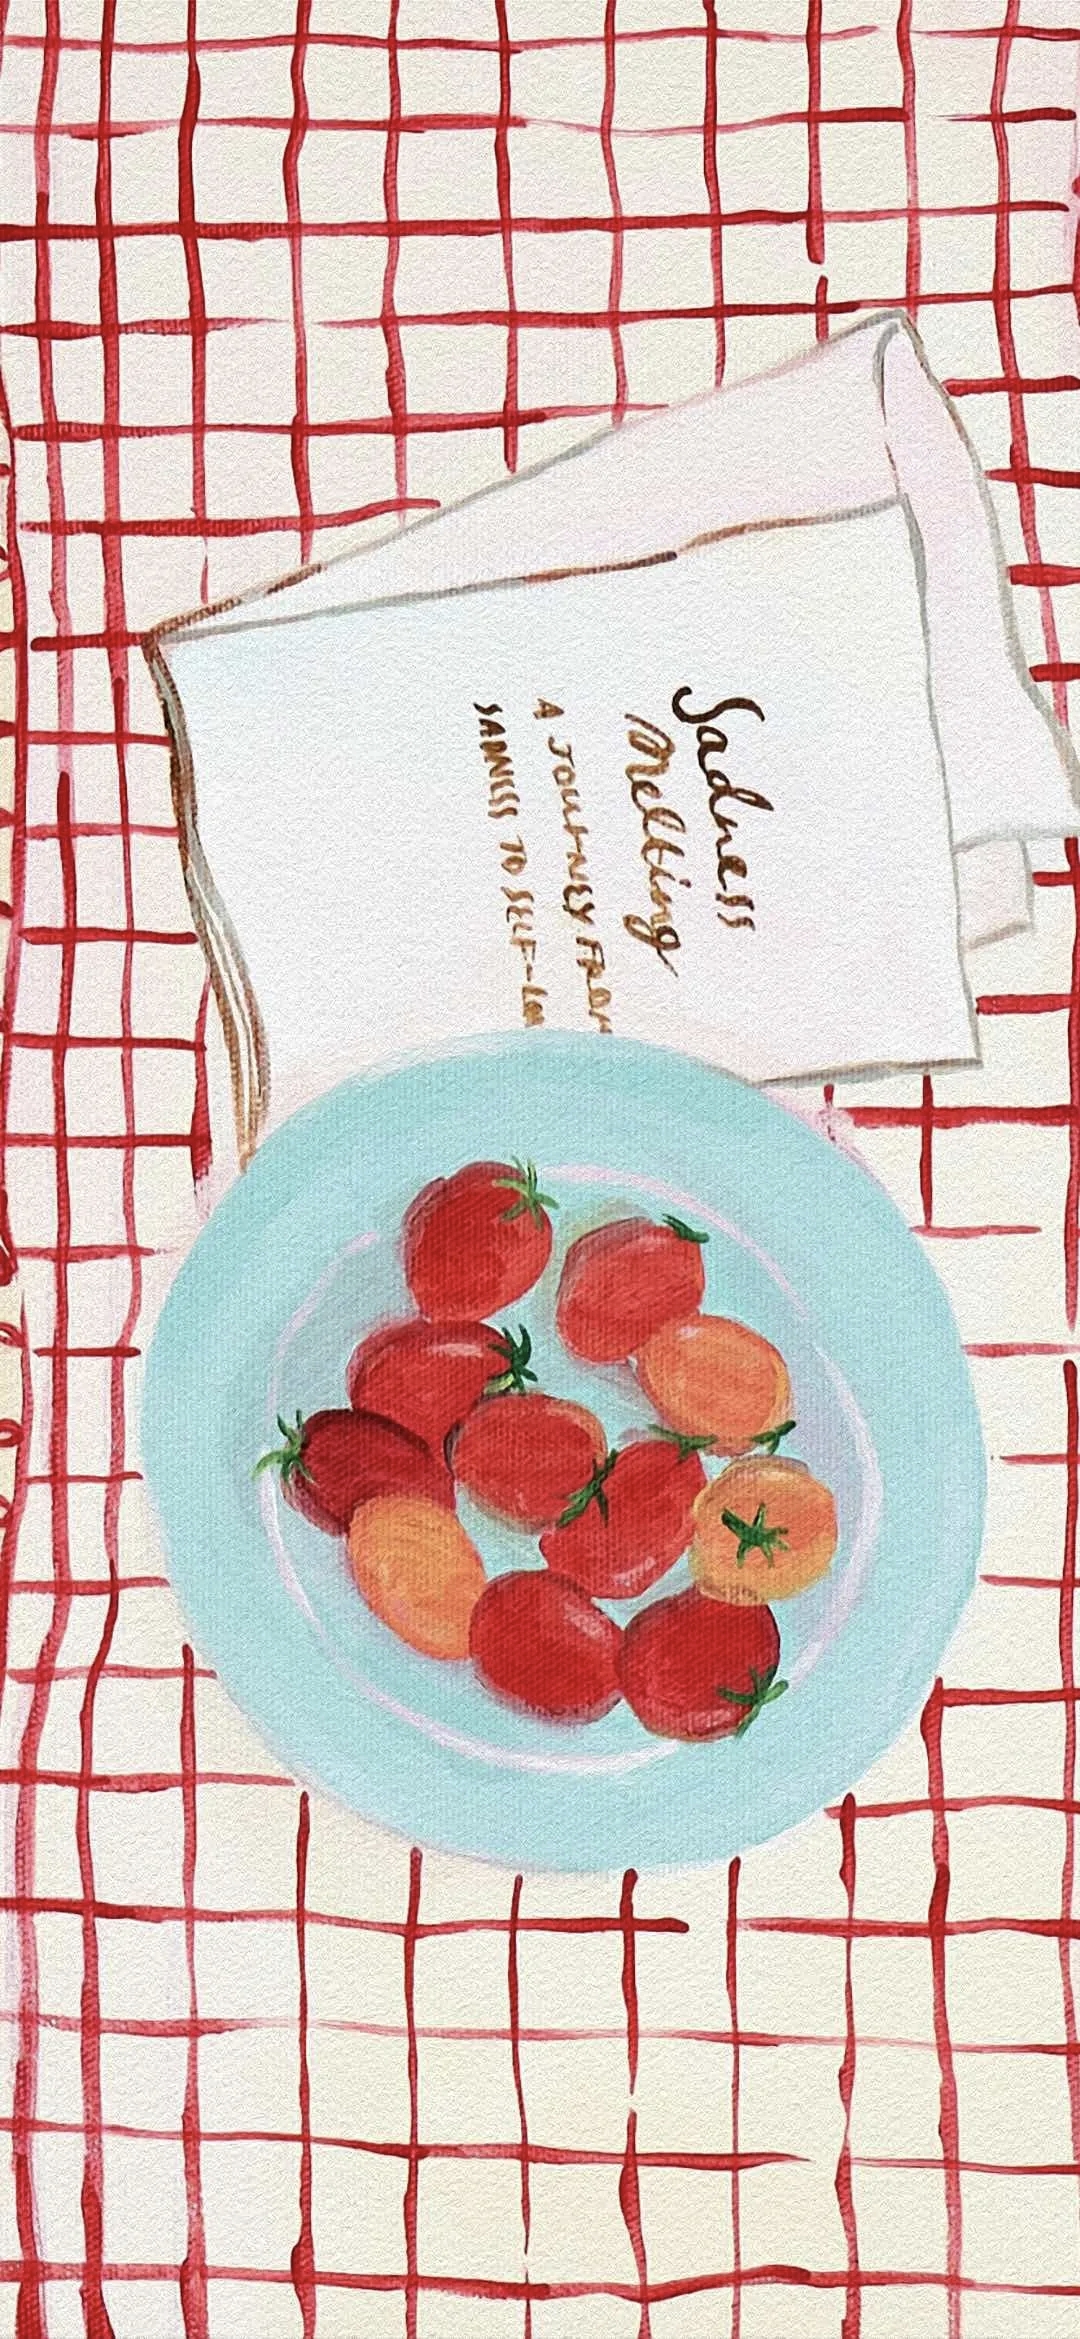 Sadness
Melting
A JOURNEY FROM
SADNESS TO SELF-LO